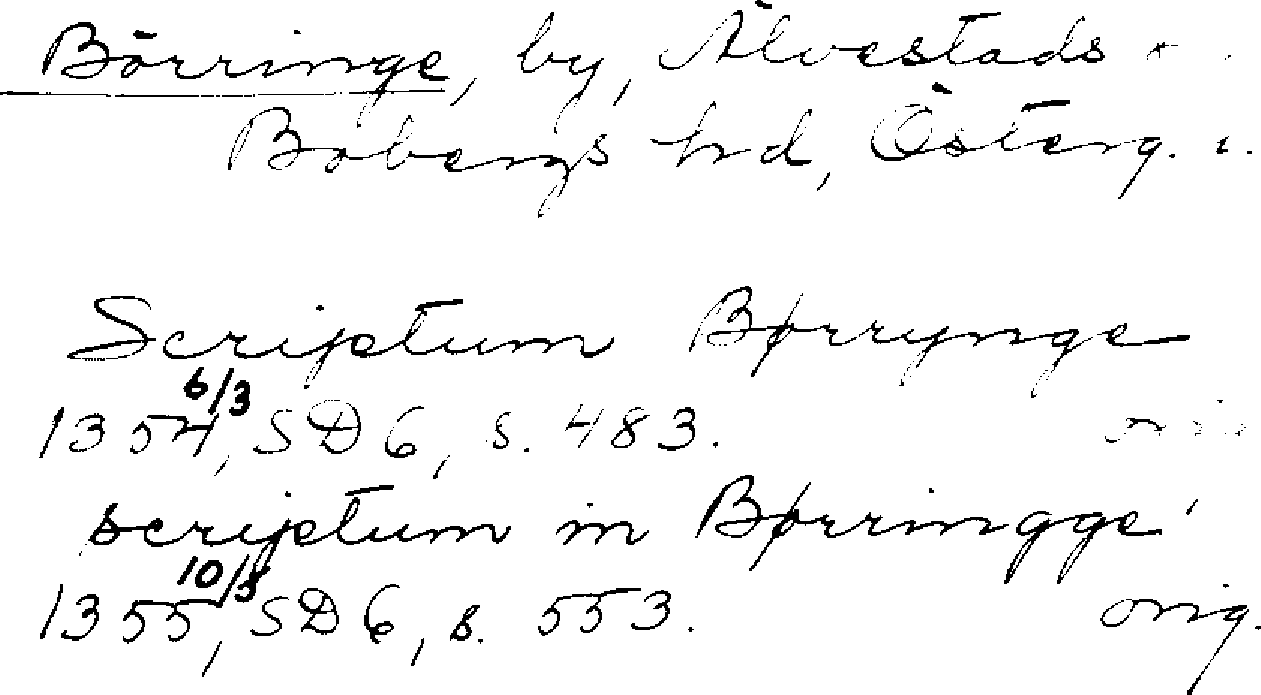 Börringe, by, Älvestads
Bobergs hd, Österg.
Scriptum Børrynge
6/3
1354, SD 6, s. 483.
scriptum in Børringge
10/5
1355, SD 6, s. 553. orig.